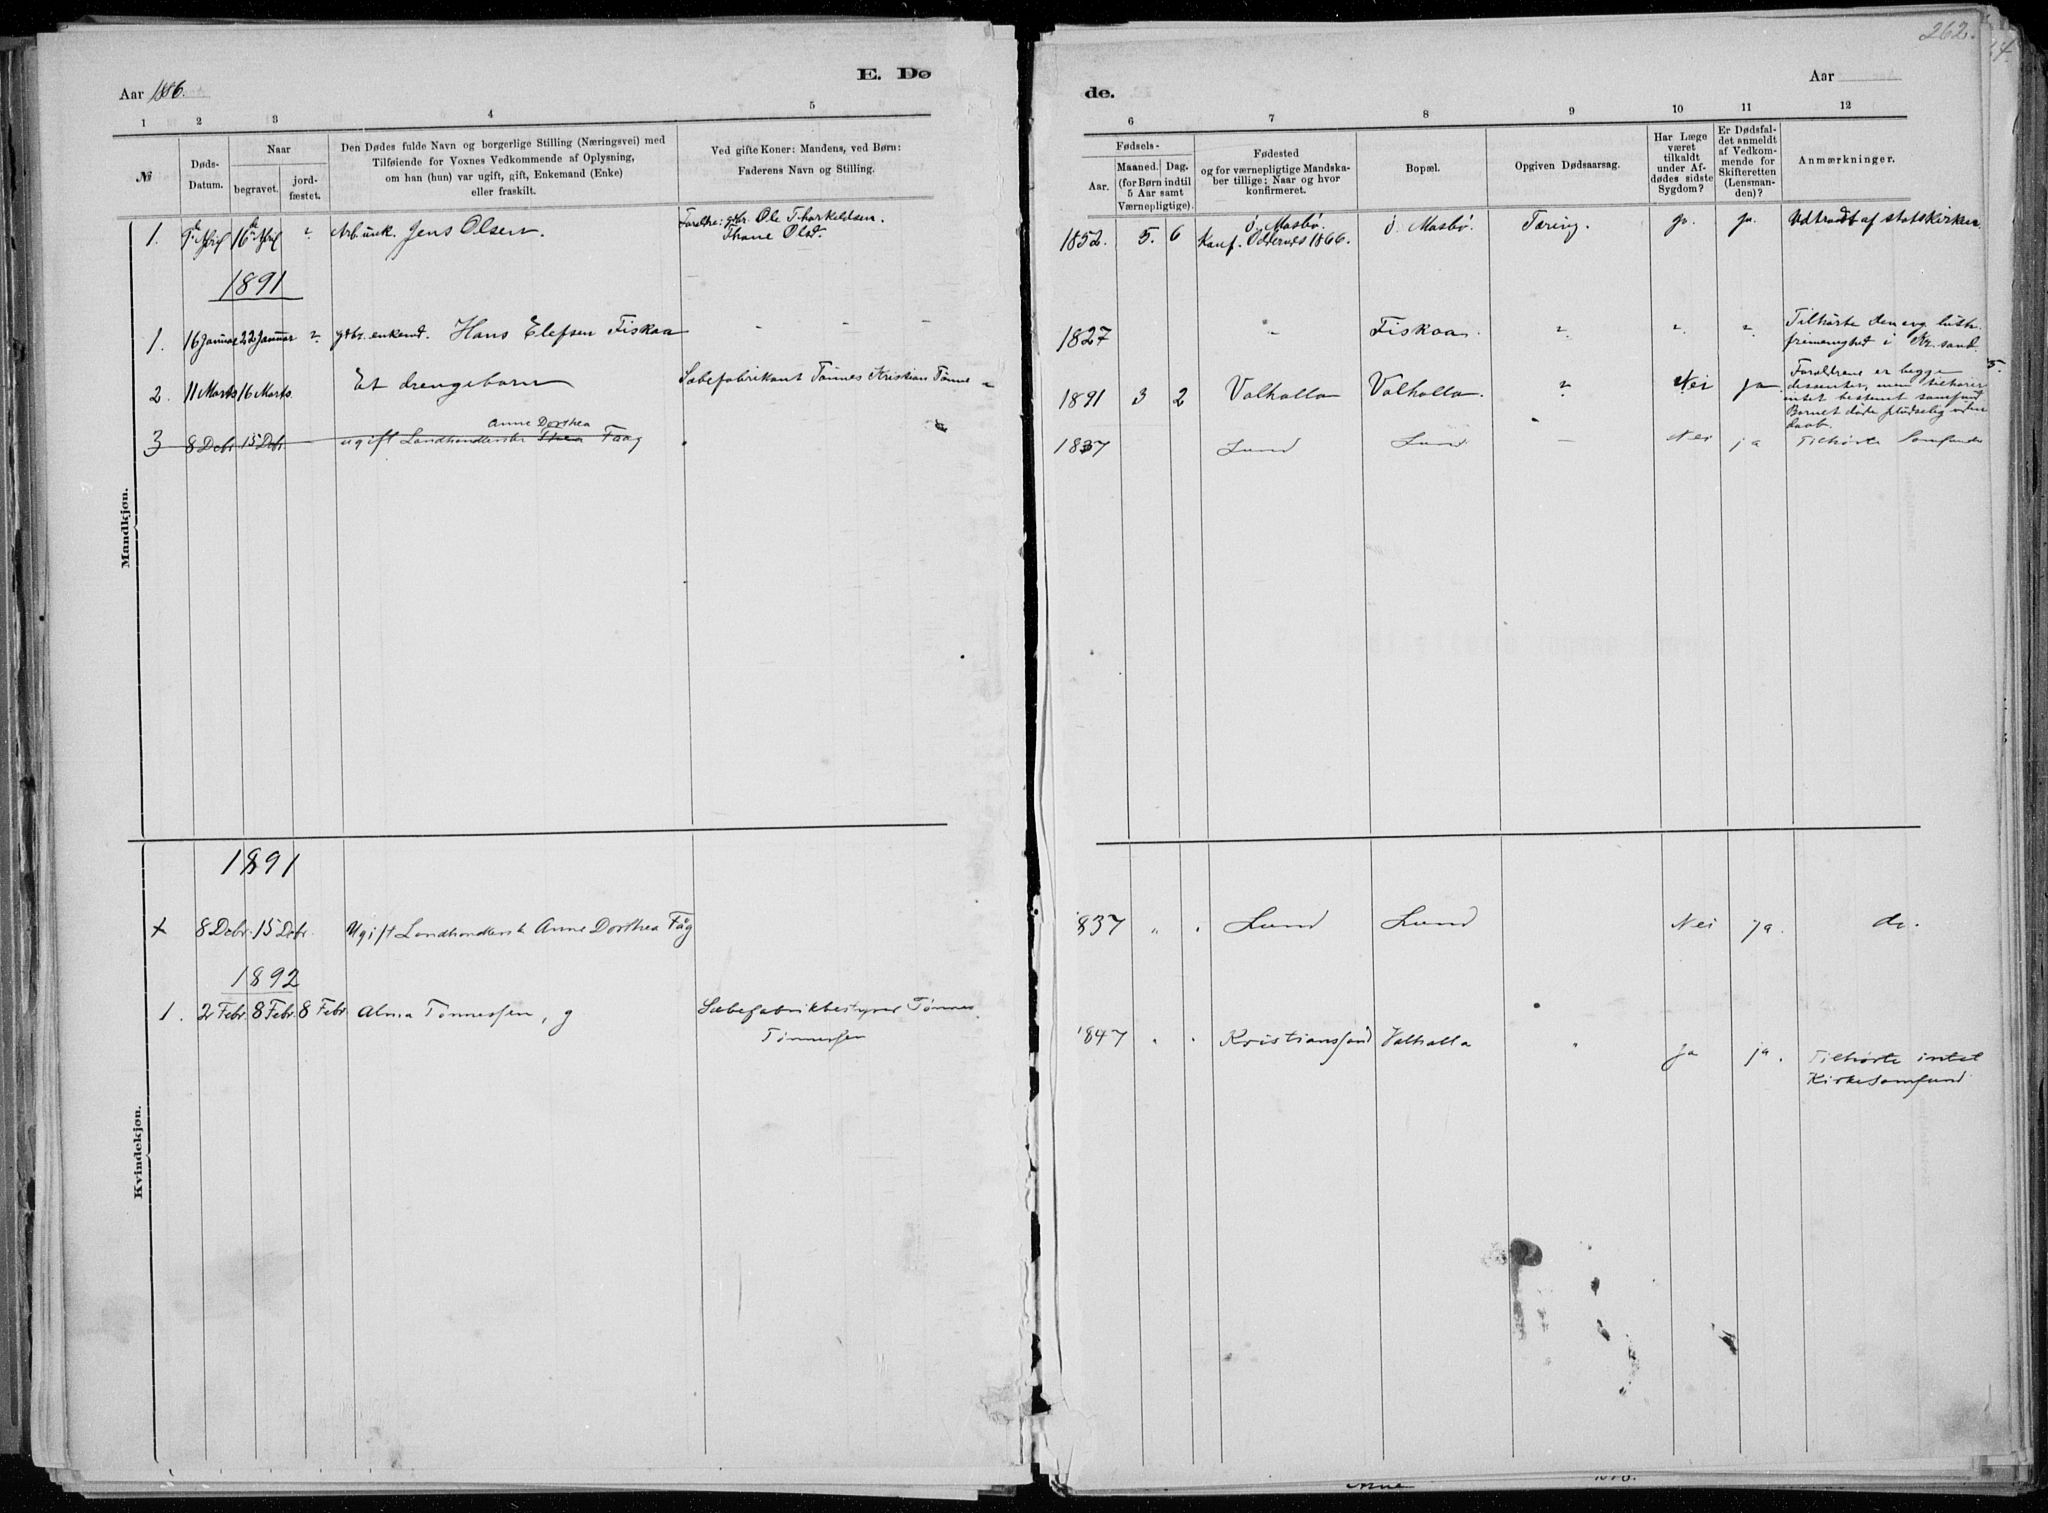 262.
E. Dø
de.
Aar 1886.
Aar
1 2 3 4 5
6 7 8 9 10 11 12
№
Døds-
Datum.
Naar
begravet.
jord-
fæstet.
Den Dødes fulde Navn og borgerlige Stilling (Næringsvei) med
Tilføiende for Voxnes Vedkommende af Oplysning,
om han (hun) var ugift, gift, Enkemand (Enke)
eller fraskilt.
Ved gifte Koner: Mandens, ved Børn:
Faderens Navn og Stilling.
Fødsels-
Aar.
Maaned. Dag.
(for Børn indtil
5 Aar samt
Værnepligtige).
Fødested
og for værnepligtige Mandska-
ber tillige: Naar og hvor
konfirmeret.
Bopæl.
Opgiven Dødsaarsag.
Har Læge
været
tilkaldt
under Af-
dødes sidste
Sygdom?
Er Dødsfal-
det anmeldt
af Vedkom-
mende for
Skifteretten
(Lensman-
den)?
Anmærkninger.
Mandkjøn.
1. 9de April 16de April " Arb. unk. Jens Olsen. Forældre: gbr. Ole Thorkeldsen.
Thone Olsd.
1852. 5. 6 ø. Mosbø.
Konf. Oddernes 1866. ø. Mosbø. Tæring. ja. ja. Udtraadt af statskirken.
1891
1. 16 Januar 22 Januar " gdbr. enkemd. Hans Elefsen Fiskaa - - -
1827 " Fiskaa. " " " Tilhørte den evg. luth.
frimenighed i Kr.sand.
2. 11 Marts 16 Marts. Et drengebarn Sæbefabrikant Tønnes Kristian Tønne-
1891 3 2 Valhalla Valhalla. " Nei ja Forældrene er begge
dissenter, men tilhører
intet bestemt samfund
Barnet døde pludselig uden
daab.
3 8 Debr 15 Debr ugift Landhandlerske Thea Faag
Anne Dorthea
1837 Lund Lund - Nei ja Tilhørte Samfundet
Kvindekjøn.
1891
+ 8 Debr. 15 Debr. Ugift Landhandlersk Anne Dorthea Fåg
1837 " " Lund Lund Nei ja. do.
1892
1. 2 Febr. 8 Febr. 8 Febr. Alma Tønnessen, g Sæbefabrikbestyrer Tønnes
Tønnessen
1847 " " Kristianssand Valhalla " ja ja. Tilhørte intet
Kirkesamfund